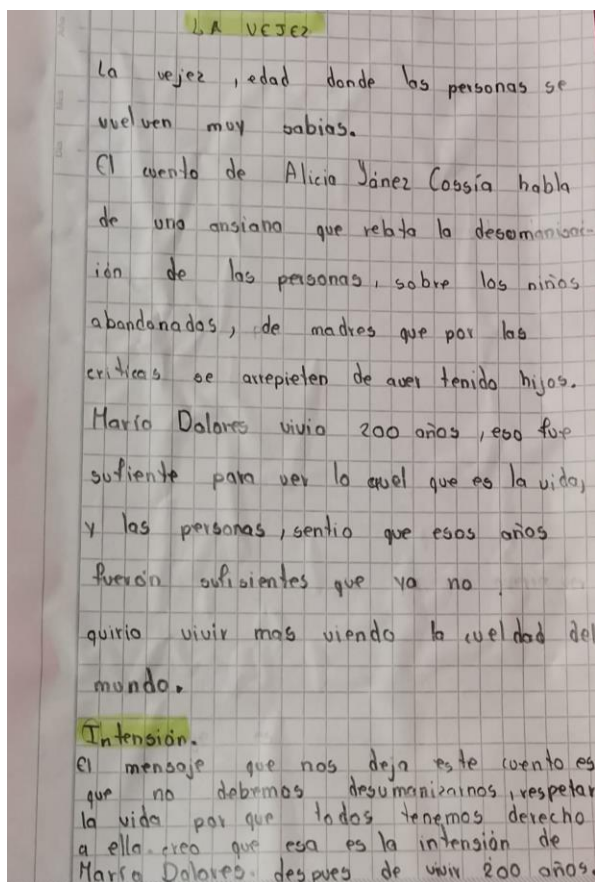 LA VEJEZ
La vejez, edad donde las personas se
vuelven muy sabias.
El cuento de Alicia Yánez Cossía habla
de una ansiana que relata la desomanisac-
ión de las personas, sobre los niños
abandonados, de madres que por las
criticas se arrepieten de aver tenido hijos.
María Dolores vivio 200 años, eso fue
sufiente para ver lo cruel que es la vida,
y las personas, sentio que esos años
fuerón sufisientes que ya no
quirio vivir mas viendo la cueldad del
mundo.
Intensión.
El mensaje que nos deja este cuento es
que no debemos desumanizarnos, respetar
la vida por que todos tenemos derecho
a ella. creo que esa es la intensión de
María Dolores. despues de vivir 200 años.